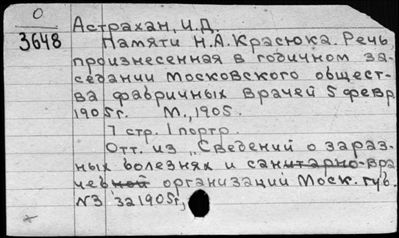 О
3648
Астрахан, И.Д.
Памяти Н.А. Красюка. Речь,
произнесенная в годичном за-
седании Московского общест-
ва фабричных врачей 5 февр.
1905г. М., 1905.
7 стр. 1 портр.
Отт. из „Сведений о зараз-
ных болезнях и санитарно-вра
чебной организаций Моск. губ.
№3 за 1905г.,